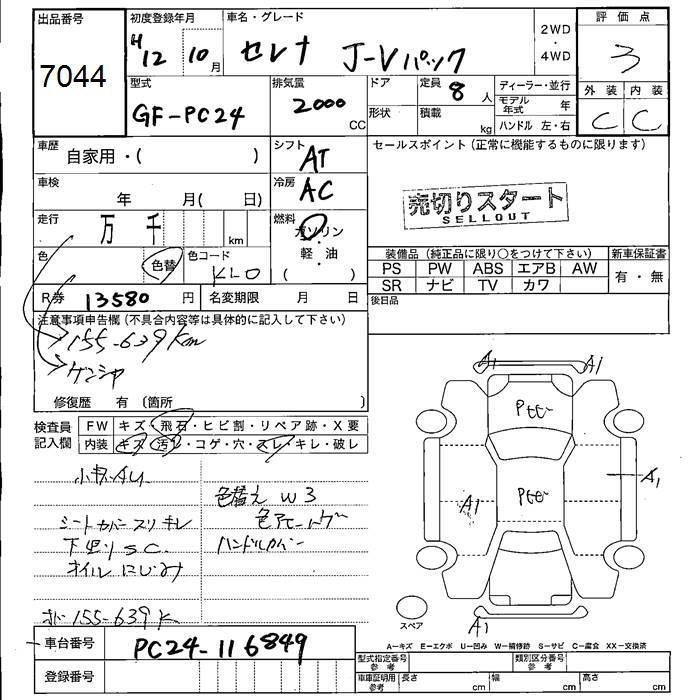 出品番号
7044
初度登録年月
H12 10月
車名・グレード
セレナ J-Vパック
2WD
・
4WD
評価点
3
外装 内装
C C
型式
GF-PC24
排気量
2000 CC
ドア
形状
定員 8 人
積載 kg
ディーラー・並行
モデル年式 年
ハンドル 左・右
車歴
自家用・( )
シフト
AT
車検
年 月( 日)
冷房
AC
走行
万 千 km
燃料
ガソリン
・
軽・油
( )
色
色替
色コード
KL0
R券 13580 円
名変期限 月 日
セールスポイント(正常に機能するものに限ります)
売切りスタート
SELLOUT
装備品(純正品に限り○をつけて下さい)
新車保証書
PS PW ABS エアB AW
SR ナビ TV カワ
有・無
後日品
注意事項申告欄(不具合内容等は具体的に記入して下さい)
155-639Km
ゲンシャ
修復歴 有〔箇所 〕
検査員記入欄
FW キズ・飛石・ヒビ割・リペア跡・X要
内装 キズ・汚レ・コゲ・穴・スレ・キレ・破レ
小キズAU
色替え W3
シートカバースリキレ
下廻りS.C.
ハンドルカバー
オイルにじみ
155-639K
車台番号 PC24-116849
登録番号
A1 A1
A1
A1
A1
スペア
A−キズ E−エクボ U−凹み W−補修跡 S−サビ C−腐食 XX−交換済
型式指定番号 参考
類別区分番号 参考
車庫証明用 参考
長さ cm
幅 cm
高さ cm